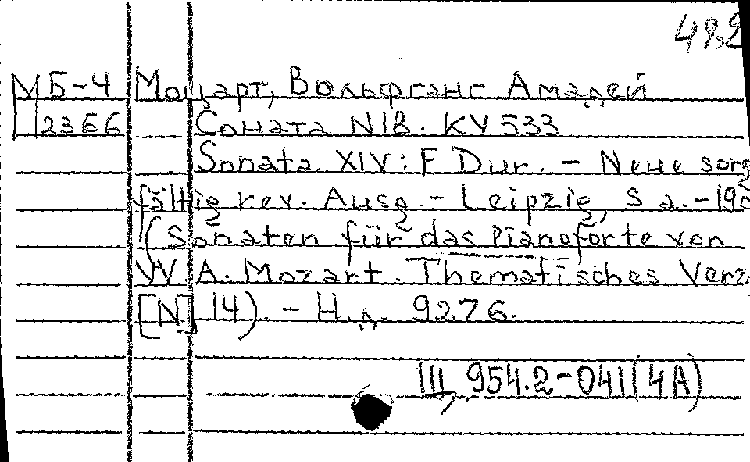 482
МБ-4 Моцарт, Вольфганг Амадей
Ц 2366 Соната N18. KV 533
Sonata XIV: F Dur. - Neue sorg
fältig rev. Ausg - Leipzig, S a. -
(Sonaten für das Pianoforte von
W A. Mozart. Thematisches Verz.
[N] 14). - Н.д. 9276.
III, 954.2-041(4A)